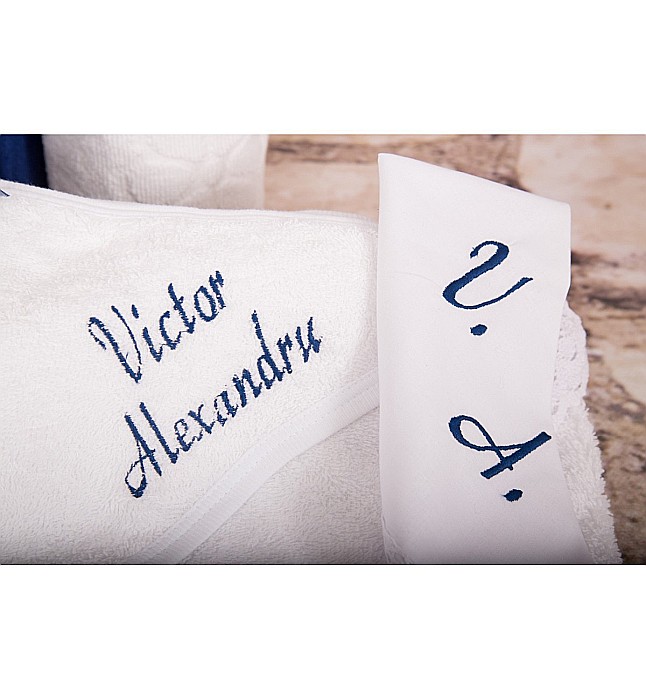 Victor
Alexandru
V.
A.